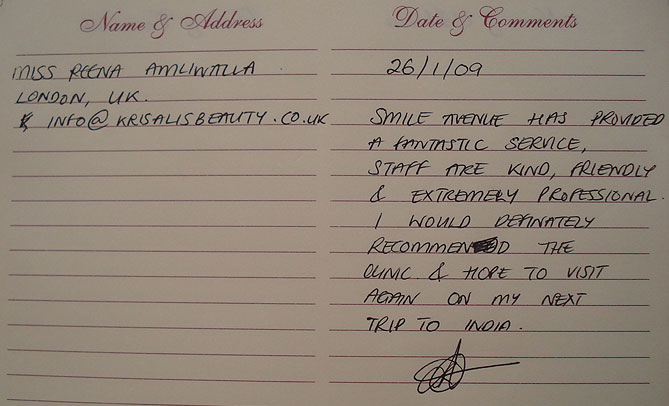 Name & Address
MISS REENA AMLIWALLA
LONDON, UK.
INFO@KRISALISBEAUTY.CO.UK
Date & Comments
26/1/09
SMILE AVENUE HAS PROVIDED
A FANTASTIC SERVICE,
STAFF ARE KIND, FRIENDLY
& EXTREMELY PROFESSIONAL.
I WOULD DEFINATELY
RECOMMEND THE
CLINIC & HOPE TO VISIT
AGAIN ON MY NEXT
TRIP TO INDIA.